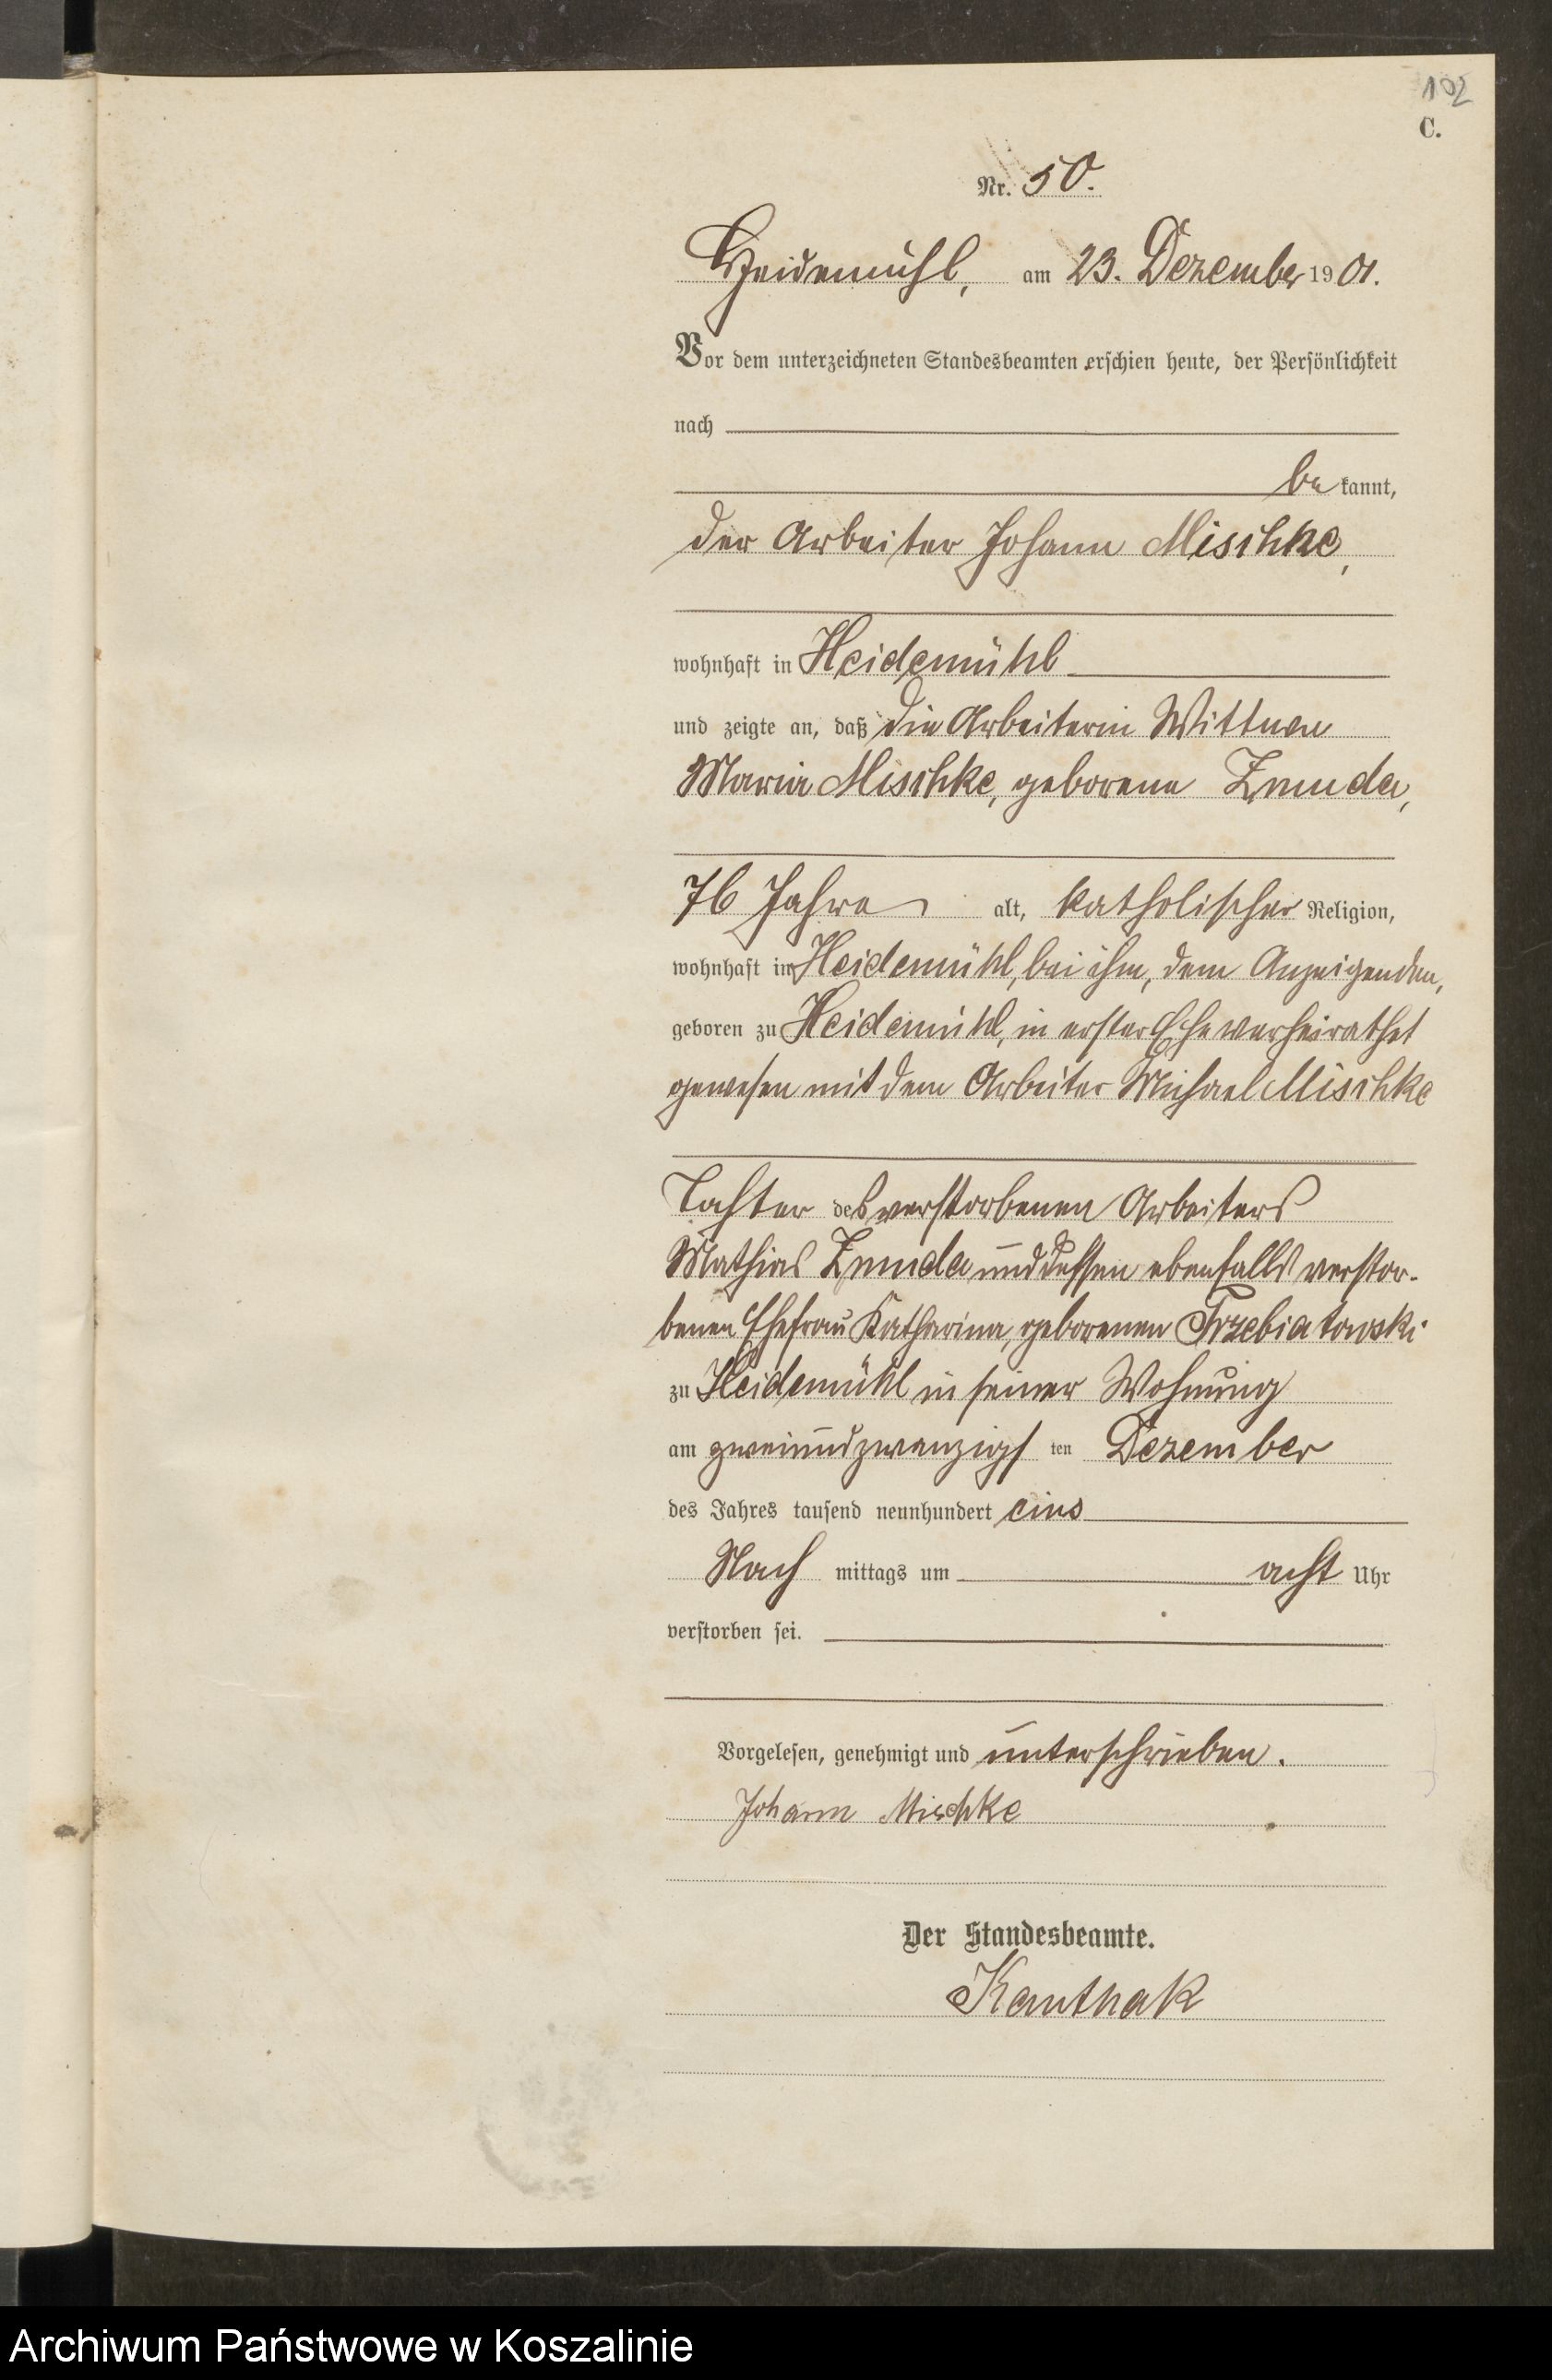 102
C.
Nr. 50.
Heidemühl, am 23. Dezember 1901.
Vor dem unterzeichneten Standesbeamten erschien heute, der Persönlichkeit
nach
bekannt,
der Arbeiter Johann Mischke,
wohnhaft in Heidemühl
und zeigte an, daß die Arbeiterin Wittwe
Maria Mischke, geborene Zmuda,
76 Jahre alt, katholischer Religion,
wohnhaft in Heidemühl, bei ihm, dem Anzeigenden,
geboren zu Heidemühl, in erster Ehe verheirathet
gewesen mit dem Arbeiter Michael Mischke
Tochter des verstorbenen Arbeiters
Mathias Zmuda und dessen ebenfalls verstor-
benen Ehefrau Katharina, geborenen Trzebiatowski
zu Heidemühl in seiner Wohnung
am zweiundzwanzigsten Dezember
des Jahres tausend neunhundert eins
Nachmittags um acht Uhr
verstorben sei.
Vorgelesen, genehmigt und unterschrieben.
Johann Mischke
Der Standesbeamte.
Kauthak
Archiwum Państwowe w Koszalinie